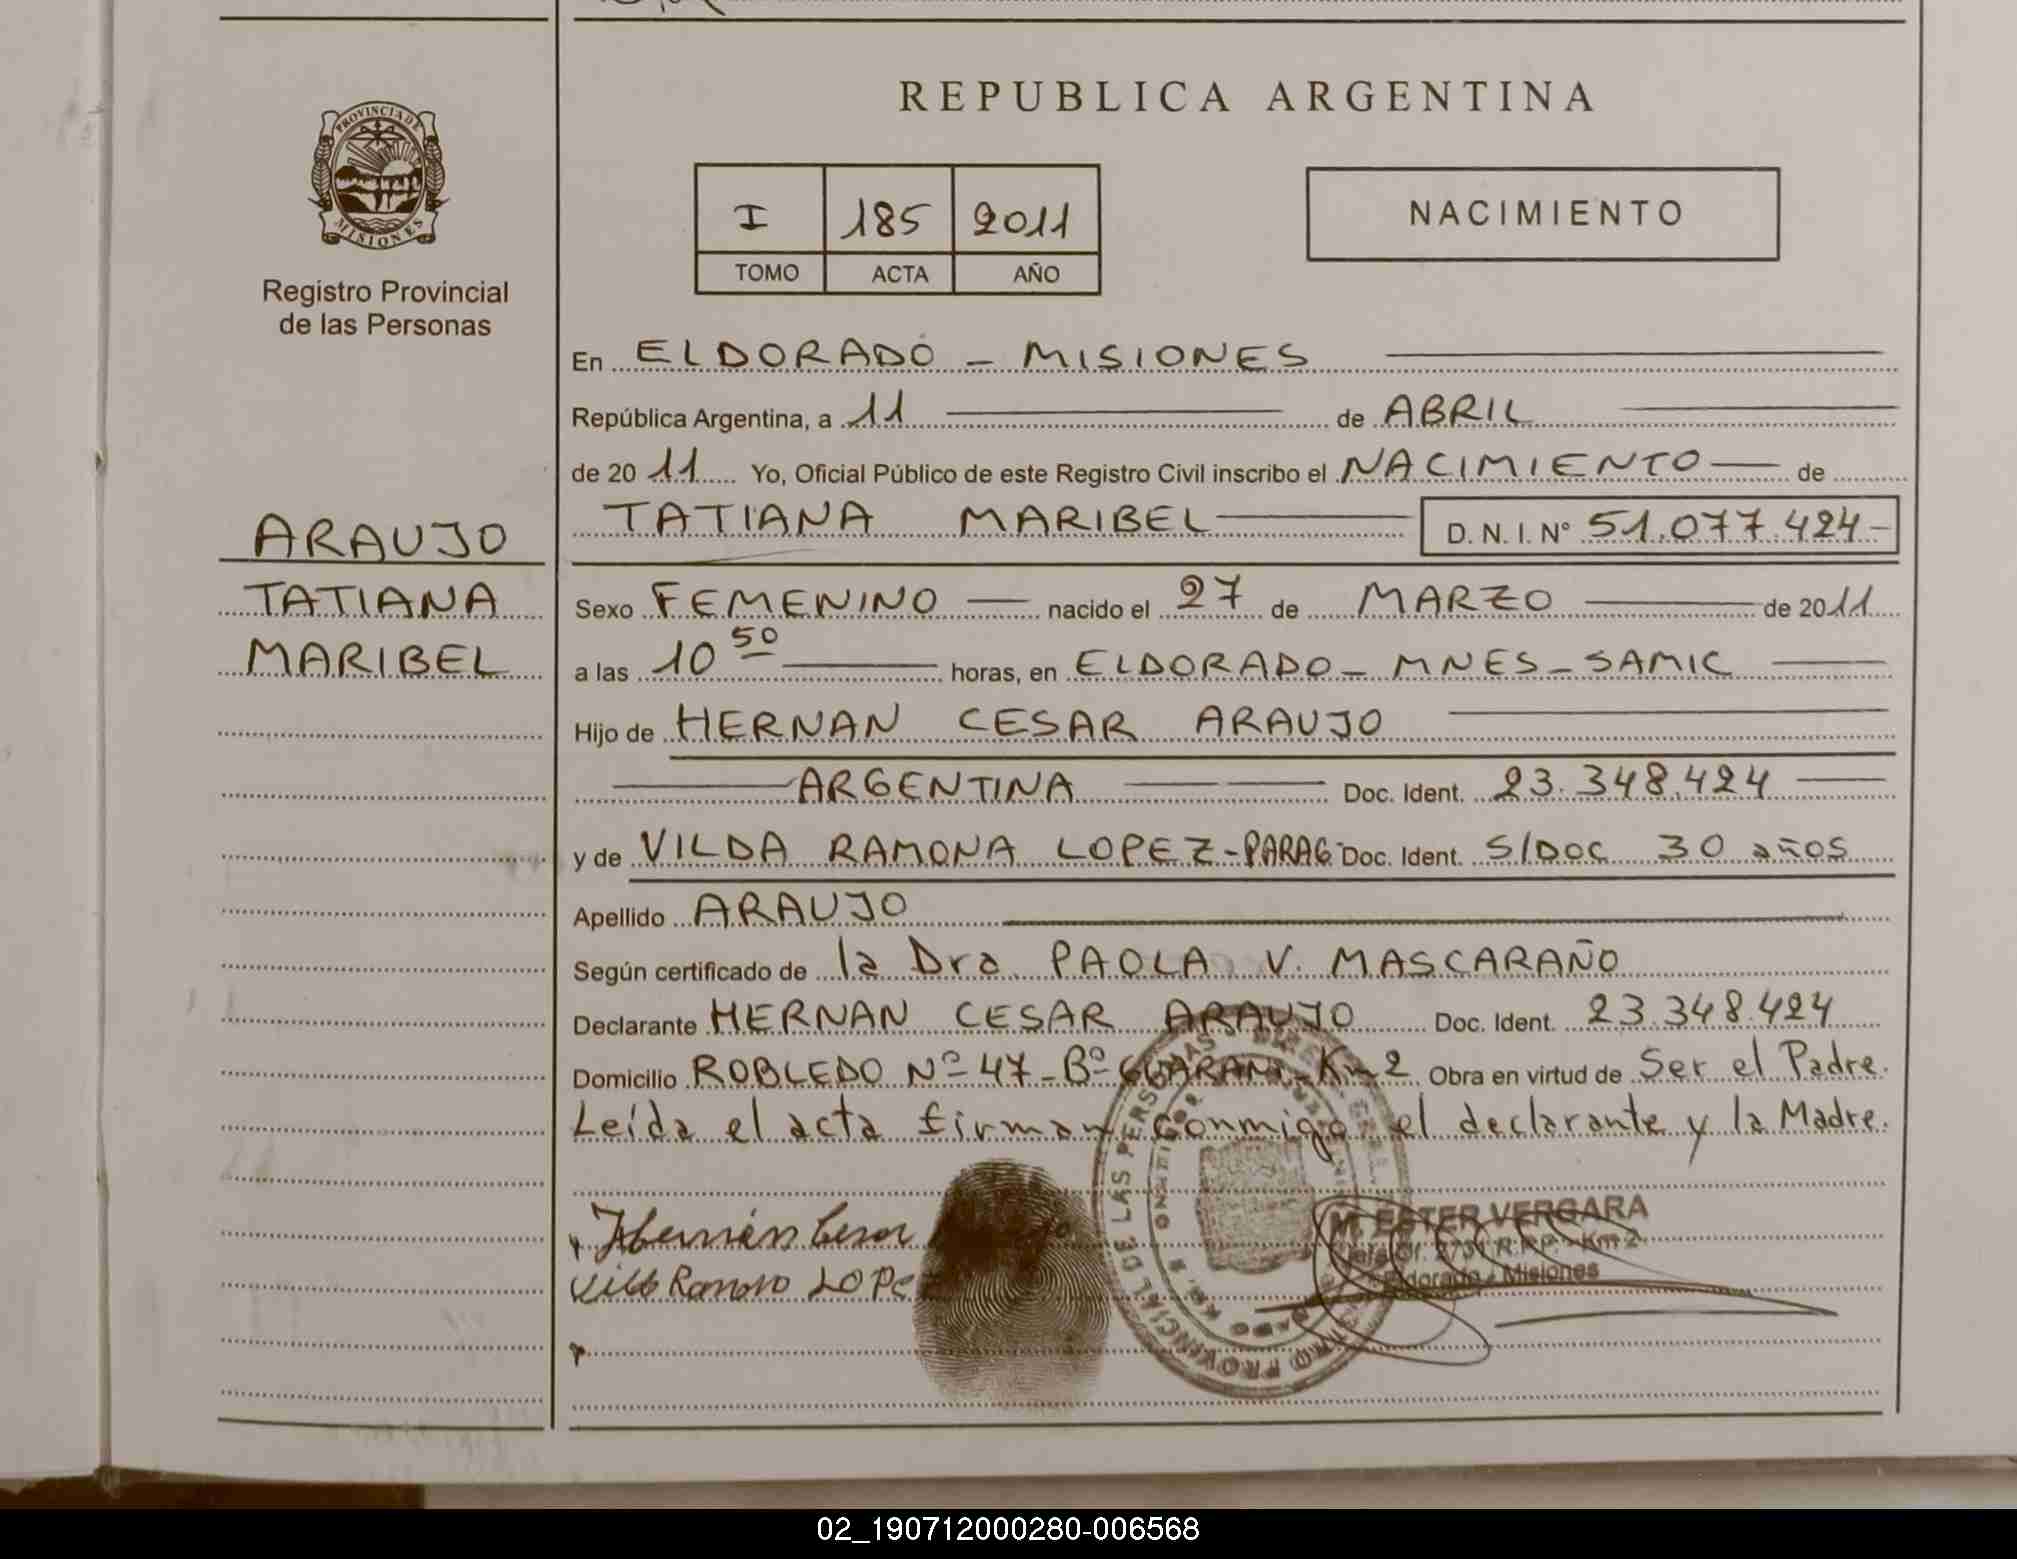 REPUBLICA ARGENTINA
PROVINCIA DE
MISIONES
Registro Provincial
de las Personas
I 185 2011
TOMO ACTA AÑO
NACIMIENTO
En ELDORADO - MISIONES
República Argentina, a 11 de ABRIL
de 20 11 Yo, Oficial Público de este Registro Civil inscribo el NACIMIENTO de
TATIANA MARIBEL D. N. I. N° 51.077.424-
ARAUJO
TATIANA
MARIBEL
Sexo FEMENINO nacido el 27 de MARZO de 2011
a las 10 50 horas, en ELDORADO - MNES - SAMIC
Hijo de HERNAN CESAR ARAUJO
ARGENTINA Doc. Ident. 23.348.424
y de VILDA RAMONA LOPEZ - PARAG Doc. Ident. S/DOC 30 años
Apellido ARAUJO
Según certificado de la Dra PAOLA V. MASCARAÑO
Declarante HERNAN CESAR ARAUJO Doc. Ident. 23.348.424
Domicilio ROBLEDO Nº 47 - Bº GUARANI - Km 2 Obra en virtud de Ser el Padre.
Leída el acta firman conmigo el declarante y la Madre.
Hernán Cesar
Ramona LOPEZ
REGISTRO PROVINCIAL DE LAS PERSONAS
M. ESTER VERGARA
Jefe Of. 2731 R.P.P. - Km 2
Eldorado - Misiones
02_190712000280-006568